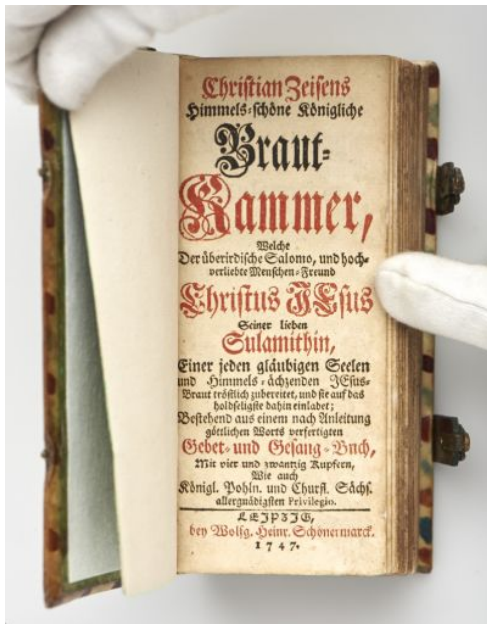 Christian Zeisens
Himmels-schöne Königliche
Braut-
Kammer,
Welche
Der überirdische Salomo, und hoch-
verliebte Menschen-Freund
Christus JEsus
Seiner lieben
Sulamithin,
Einer jeden gläubigen Seelen
und Himmels-ächzenden JEsus-
Braut tröstlich zubereitet, und sie auf das
holdseligste dahin einladet;
Bestehend aus einem nach Anleitung
göttlichen Worts verfertigten
Gebet- und Gesang-Buch,
Mit vier und zwantzig Kupfern,
Wie auch
Königl. Pohln. und Churfl. Sächs.
allergnädigsten Privilegio.
LEJPZJG,
bey Wolfg. Heinr. Schönermarck.
1747.